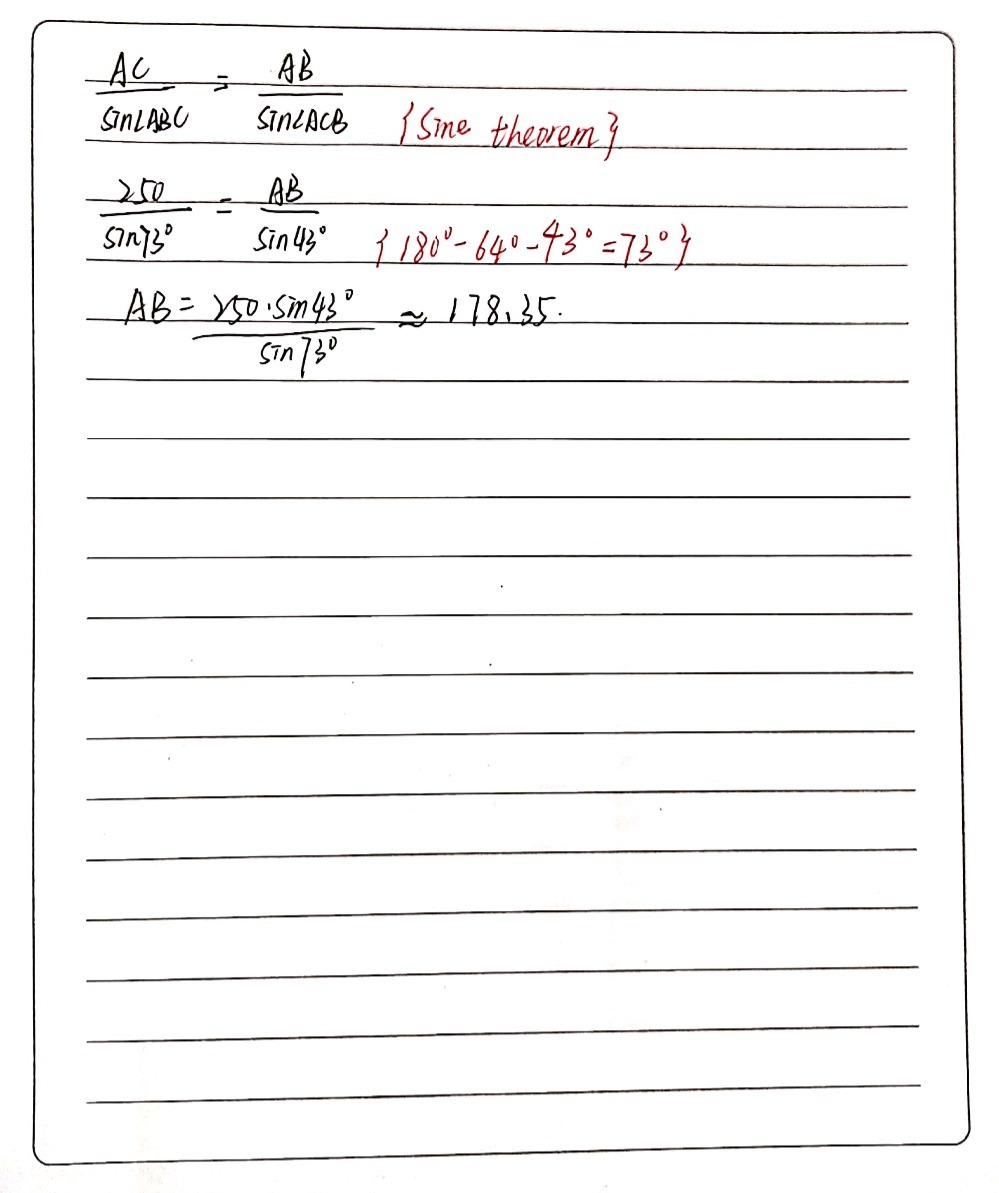 AC/sin∠ABC = AB/sin∠ACB {Sine theorem}
250/sin73° = AB/sin43° {180°-64°-43°=73°}
AB = 250·sin43°/sin73° ≈ 178.35.